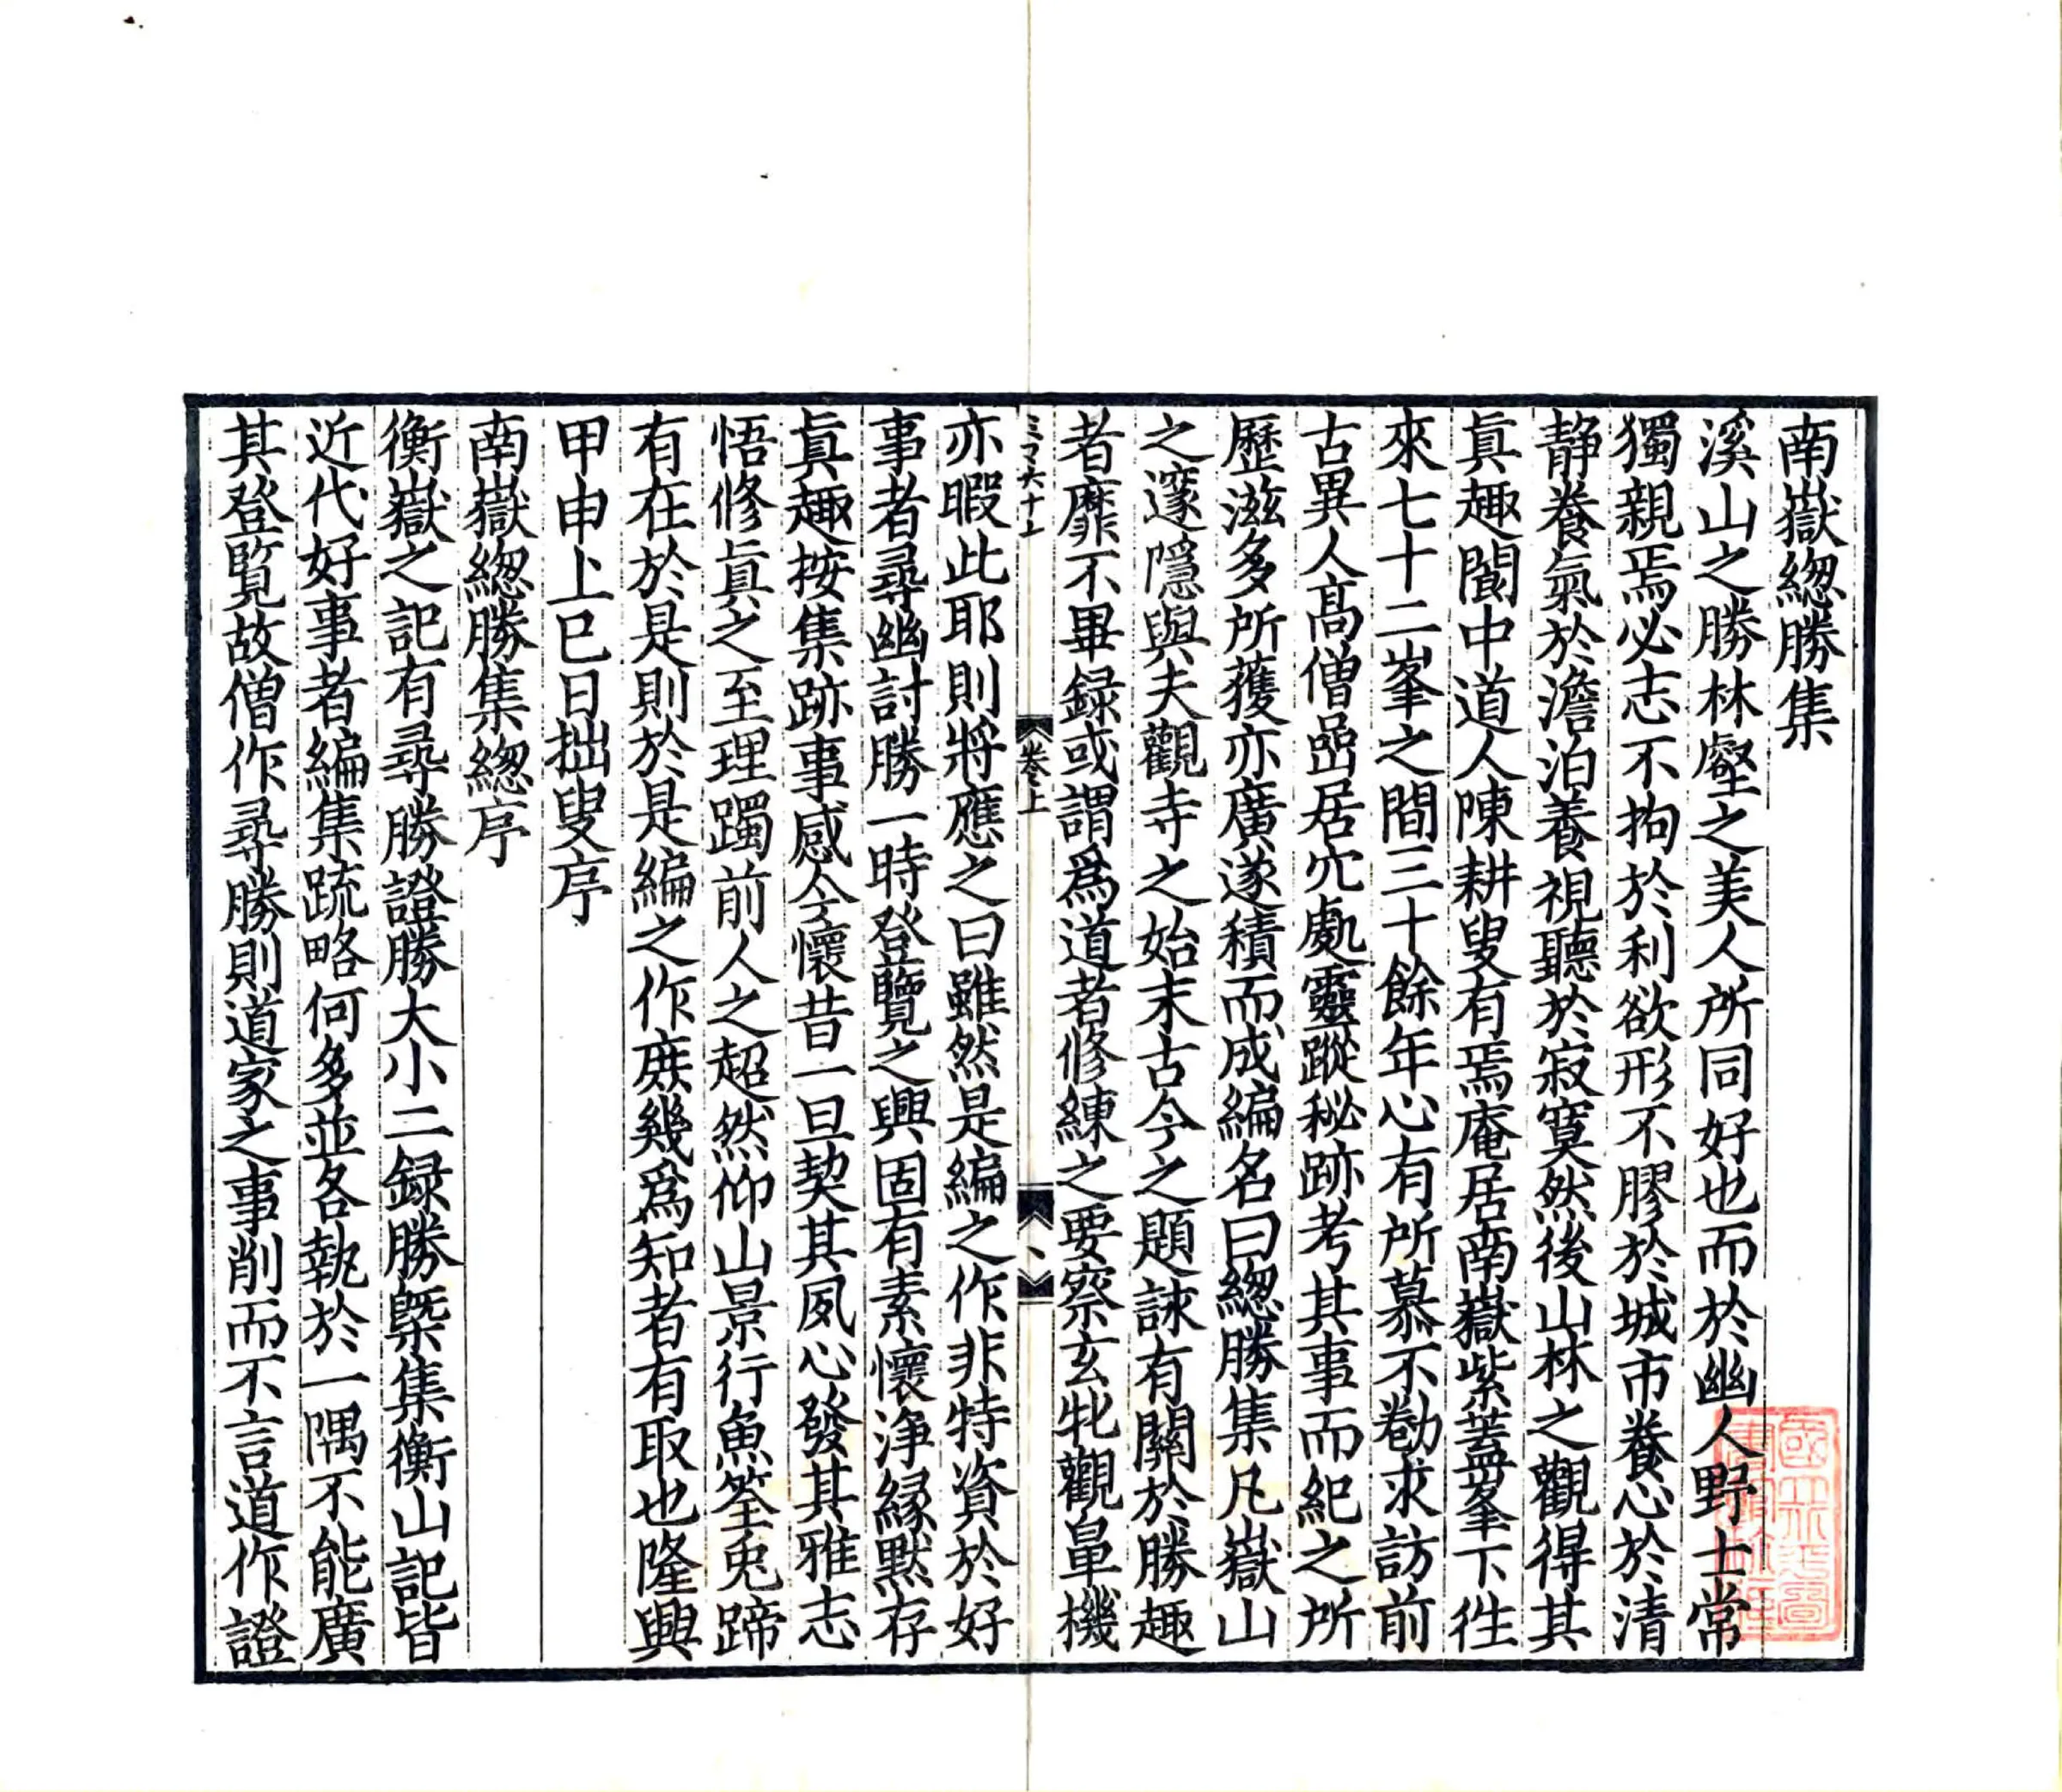 南嶽緫勝集
溪山之勝林壑之美人所同好也而於幽人野士常
獨親焉必志不拘於利欲形不膠於城市養心於清
静養氣於澹泊養視聽於寂寞然後山林之觀得其
眞趣閬中道人陳耕叟有焉庵居南嶽紫蓋峯下徃
來七十二峯之間三十餘年心有所慕不勌求訪前
古異人髙僧嵒居穴處靈蹤秘跡考其事而紀之所
歷滋多所獲亦廣遂積而成編名曰緫勝集凡嶽山
之邃隱與夫觀寺之始末古今之題詠有關於勝趣
者靡不畢録或謂爲道者修練之要察玄牝觀臯機
卷上
亦暇此耶則將應之曰雖然是編之作非特資於好
事者尋幽討勝一時登覽之興固有素懷浄縁黙存
眞趣按集跡事感今懷昔一旦契其夙心發其雅志
悟修眞之至理躅前人之超然仰山景行魚筌兎蹄
有在於是則於是編之作庶幾爲知者有取也隆興
甲申上巳日拙叟序
南嶽緫勝集緫序
衡嶽之記有尋勝證勝大小二録勝槩集衡山記皆
近代好事者編集䟽略何多並各執於一隅不能廣
其登覧故僧作尋勝則道家之事削而不言道作證